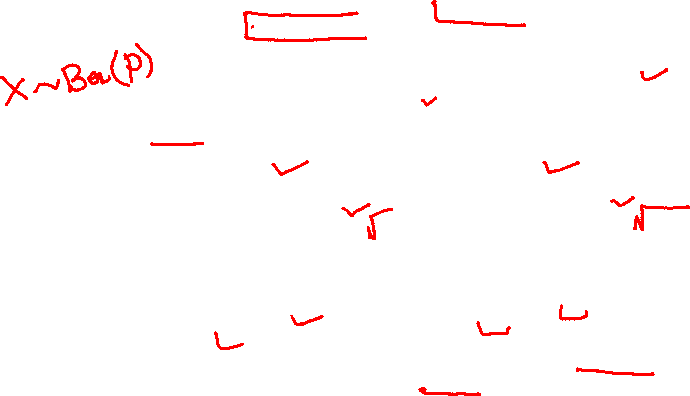 X ~ Ber(p)